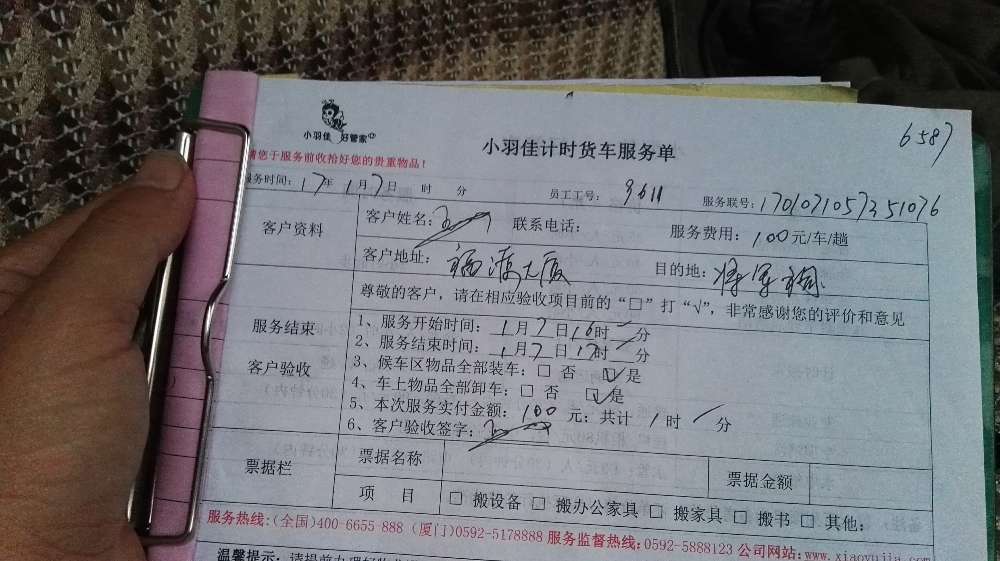 小羽佳 好管家
6587
小羽佳计时货车服务单
请您于服务前收拾好您的贵重物品！
服务时间：17年1月7日 时 分 员工工号：9611 服务联号：1701071057351076
客户资料
客户姓名： 联系电话： 服务费用：100元/车/趟
客户地址：福满大厦 目的地：将军祠
尊敬的客户，请在相应验收项目前的“□”打“√”，非常感谢您的评价和意见
服务结束
客户验收
1、服务开始时间：1月7日16时 分
2、服务结束时间：1月7日17时 分
3、候车区物品全部装车：□ 否 ☑是
4、车上物品全部卸车：□ 否 ☑是
5、本次服务实付金额：100元；共计 1时 分
6、客户验收签字：
票据栏
票据名称 票据金额
项 目 □ 搬设备 □ 搬办公家具 □ 搬家具 □ 搬书 □ 其他：
服务热线：(全国)400-6655 888 (厦门)0592-5178888 服务监督热线：0592-5888123 公司网站：www.xiaoyujia.com
温馨提示：